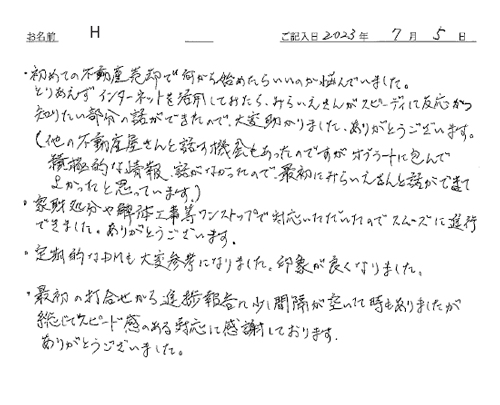 お名前 H ご記入日 2023年 7月 5日
・初めての不動産売却で何から始めたらいいのか悩んでいました。
とりあえずインターネットを活用しておたら、みらいえさんがスピーディに反応かつ
知りたい部分の話ができたので、大変助かりました、ありがとうございます。
(他の不動産屋さんと話す機会もあったのですがオブラートに包んで
積極的な情報、話がなかったので、最初にみらいえさんと話ができて
よかったと思っています。)
・家財処分や解体工事等ワンストップで対応いただいたのでスムーズに進行
できました。ありがとうございます。
・定期的なDMも大変参考になりました。印象が良くなりました。
・最初の打合せから進捗報告に少し間隔が空いた時もありましたが
総じてスピード感のある対応に感謝しております。
ありがとうございました。